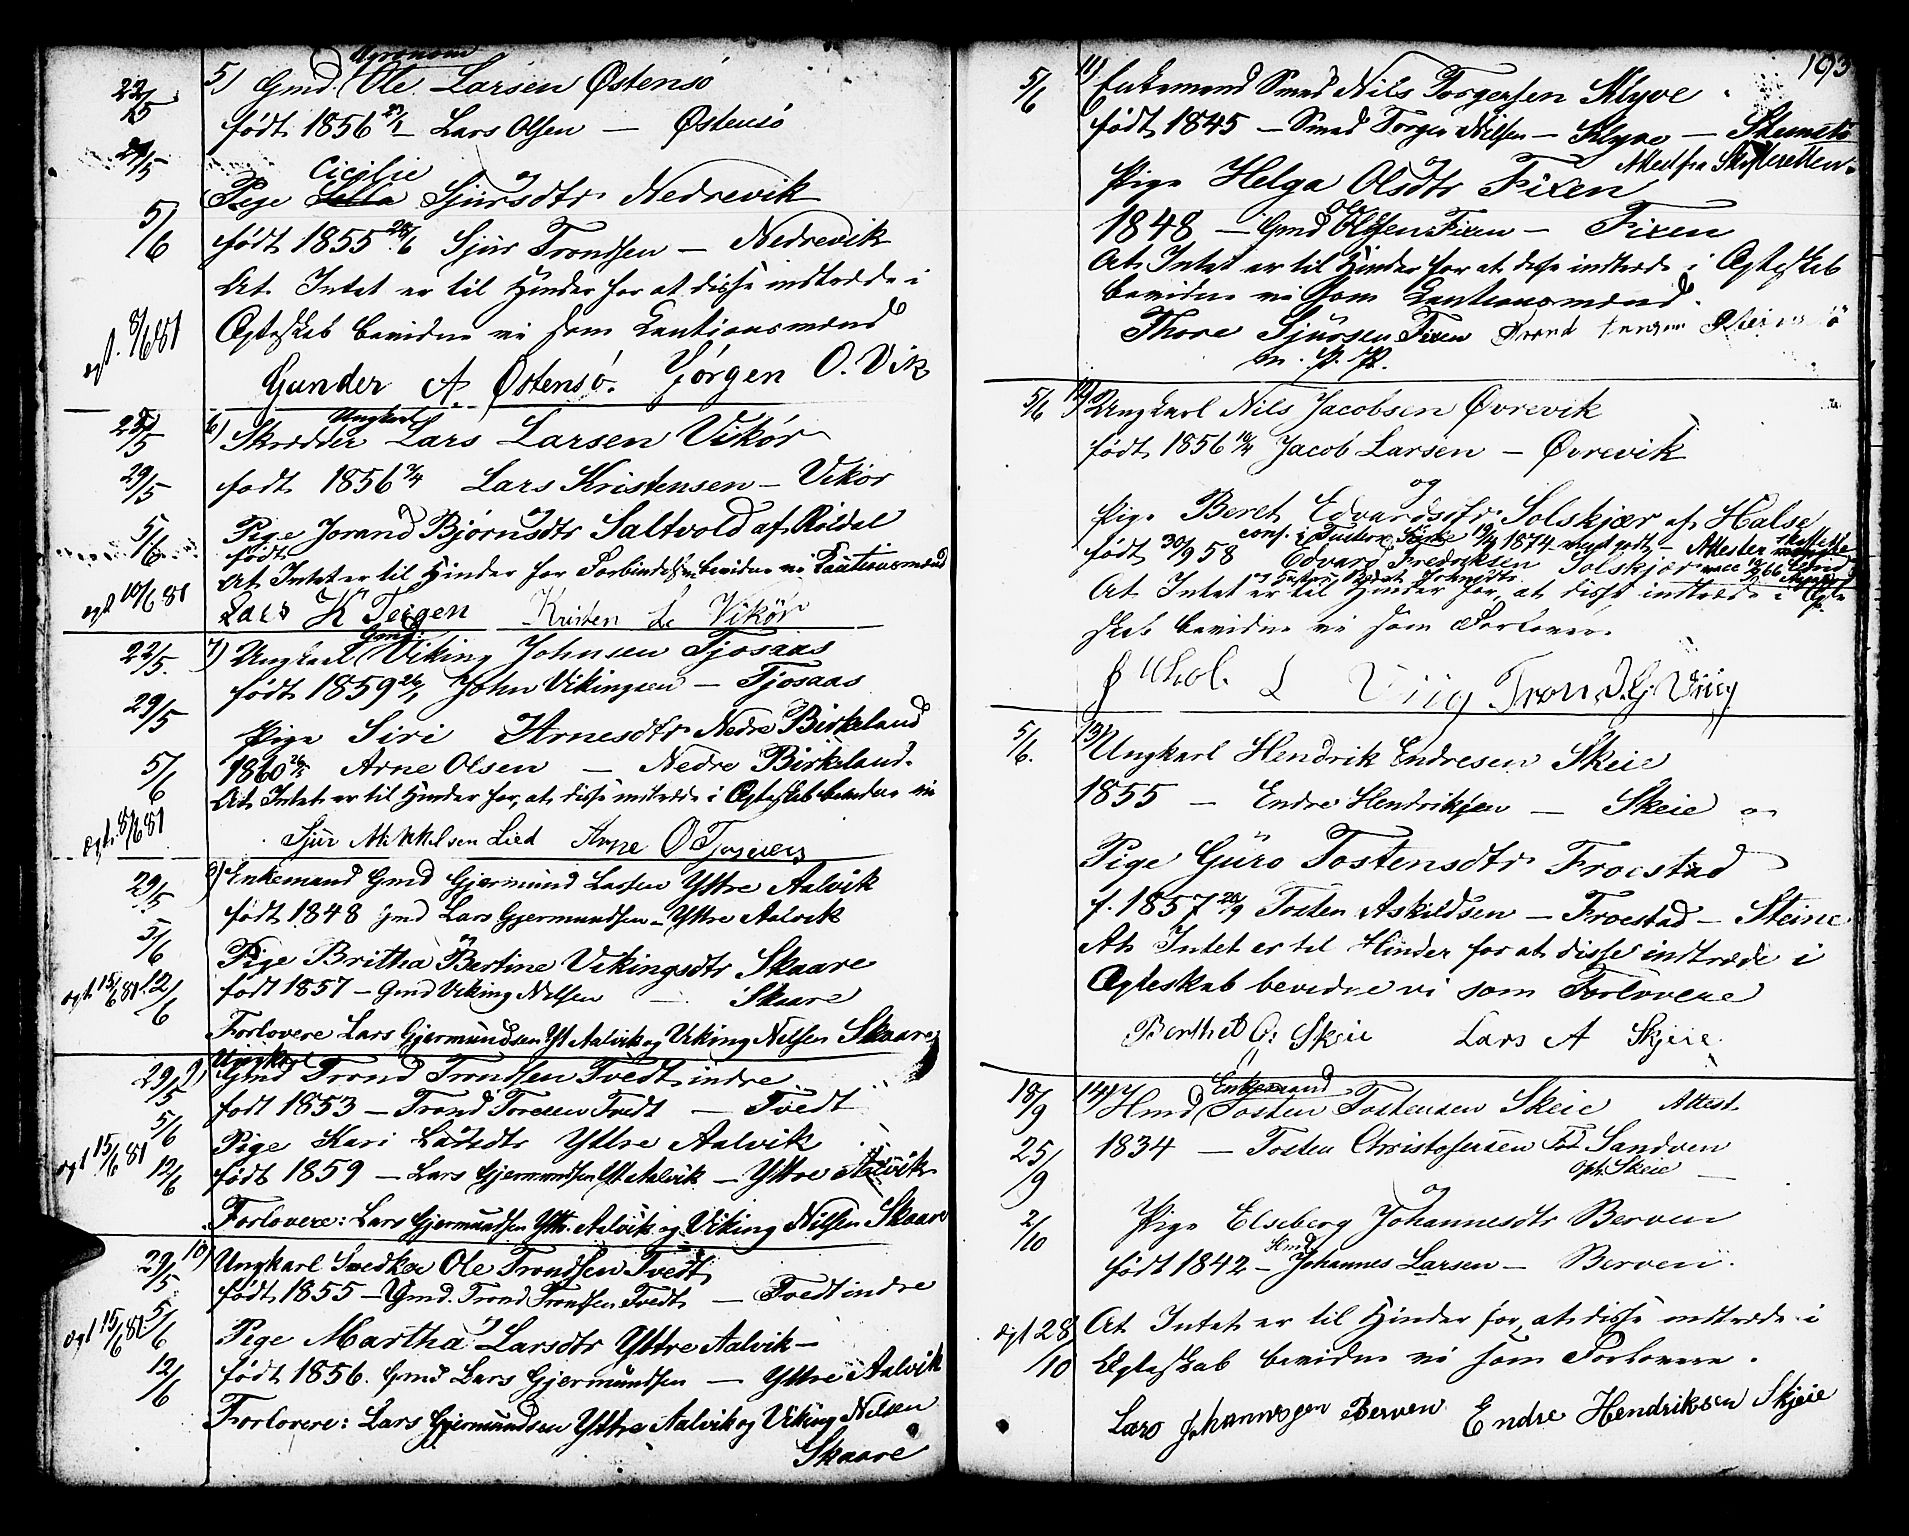 Agronom
22/5 5) Gmd. Ole Larsen Østensö
født 1856 27/1 Lars Olsen — Østensö
29/5 Cicilie og
Pige Sjursdtr Nedrevik
5/6 født 1855 28/6 Sjur Trondsen — Nedrevik
At Intet er til Hinder for at disse indtræde i
ægt. 8/6 81 Ægteskab bevidne vi som Cautionsmænd
Gunder A. Östensö. Jörgen O. Vik
22/5 6) Skrædder Ungkarl Lars Larsen Vikör
29/5 født 1856 7/4 Lars Kristensen — Vikör
og
5/6 Pige Jorand Björnsdtr Saltvold af Röldal
født
At Intet er til Hinder for Forbindelsen bevidne vi Cautionsmænd
ægt 10/6 81
Lars K Teigen Kristen L. Vikör
22/5. 7) Ungkarl Gmd. Viking Johnsen Tjosaas
født 1859 26/1 John Vikingsen — Tjosaas
29/5
Pige Siri Arnesdtr Nedre Birkeland
5/6 1860 26/5 Arne Olsen — Nedre Birkeland.
At Intet er til Hinder for, at disse indtræde i Ægteskab bevidne vi
Ægt. 8/6 81
Sjur Mikkelsen Lied Arne O
29/5. 8) Enkemand Gmd Gjermund Larsen Yttre Aalvik
født 1848 Gmd Lars Gjermundsen — Yttre Aalvik
5/6 og
Pige Britha Bertine Vikingsdtr Skaare
ægt 15/6 81. 12/6 født 1857 — Gmd Viking Nilsen — Skaare
Forlovere Lars Gjermundsen Yt Aalvik og Viking Nilsen Skaare
Ungkl
29/5 9) Gmd Trond Trondsen Tvedt indre
født 1853 — Trond Toresen Tvedt — Tvedt
5/6
Pige Kari Larsdtr Yttre Aalvik
ægt 15/6 81 12/6 født 1859 — Lars Gjermundsen Yt Aalvik — Yttre Aalvik
Forlovere: Lars Gjermundsen Ytt. Aalvik og Viking Nilsen Skaare
29/5 10) Ungkarl Snedker Ole Trondsen Tvedt
født 1855 — Gmd. Trond Trondsen Tvedt — Tvedt indre
ægt 15/6 81 5/6 og
Pige Martha Larsdtr Yttre Aalvik —
12/6 født 1856. Gmd Lars Gjermundsen — Yttre Aalvik
Forlovere: Lars Gjermundsen Yttre Aalvik og Viking Nilsen
Skaare
193
5/6 11) Enkemand Smed Nils Torgersen Klyve
født 1845 — Smed Torger Nilsen — Klyve — Steinstö
og Attest fra Skifteretten.
Pige Helga Olsdtr Fixen
1848 — Gmd Ole Olsen Fixen — Fixen
At Intet er til Hinder for at disse indtræde i Ægteskab
bevidne vi som Cautionsmænd.
Thore Sjursen Fixen Trond
m. p. P.
5/6 12) Ungkarl Nils Jacobsen Övrevik
født 1856 10/4 Jacob Larsen — Övrevik
og
Pige Beret Edvardsdtr Solskjær af Halse
conf. i Tustern Kirke 1874 med godt — Attester
født 30/9 58 Edvard Fredriksen Solskjær vacc 66
At Intet er til Hinder for, at disse indtræde i Ægte
skab bevidne vi som Forlovere.
Jakob. L Viig Trond. G. Viig
5/6. 13) Ungkarl Hendrik Endresen Skeie
1855 — Endre Hendriksen — Skeie og
Pige Guro Tostensdtr Froestad
f. 1857 28/9 Tosten Askildsen — Froestad — Steine
At Intet er til Hinder for at disse indtræde i
Ægteskab bevidne vi som Forlovere
Berthel O. Skeie Lars A Skjeie.
Enkemand
18/9 14) Hmd Tosten Tostensen Skeie Attest
25/9 1834 — Tosten Christofersen Sandven
Oph. Skeie —
og
2/10 Pige Elseberg Johannesdtr Berven
Hmd
født 1842 — Johannes Larsen — Berven.
ægt 28/10 At Intet er til Hinder for, at disse indtræde i
Ægteskab bevidne vi som Forlovere.
Lars Johannesen Berven Endre Hendriksen Skjeie